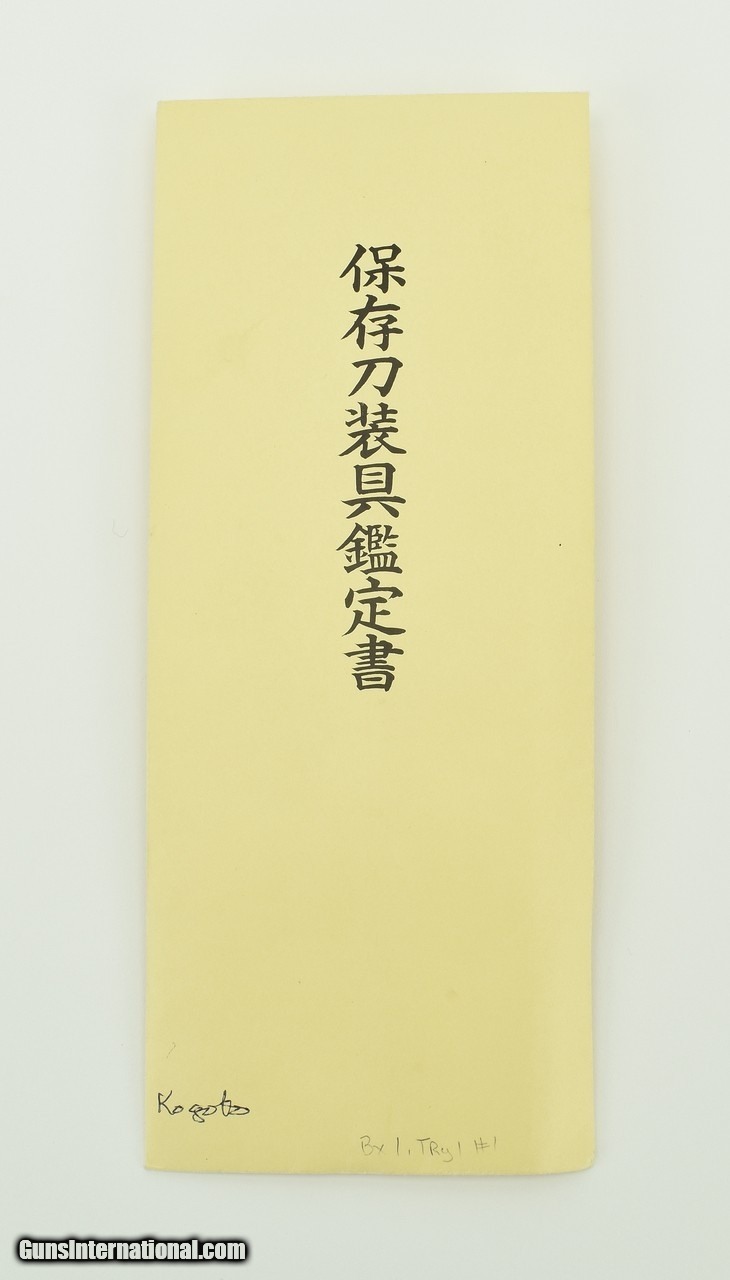 保存刀装具鑑定書
Kogoto
Bx 1, TRy 1 #1
GunsInternational.com